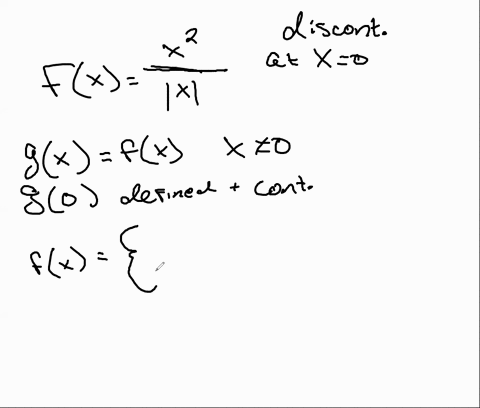 F(x) = x² / |x|
discont.
at x=0
g(x) = f(x) x ≠ 0
g(0) defined + cont.
f(x) = {